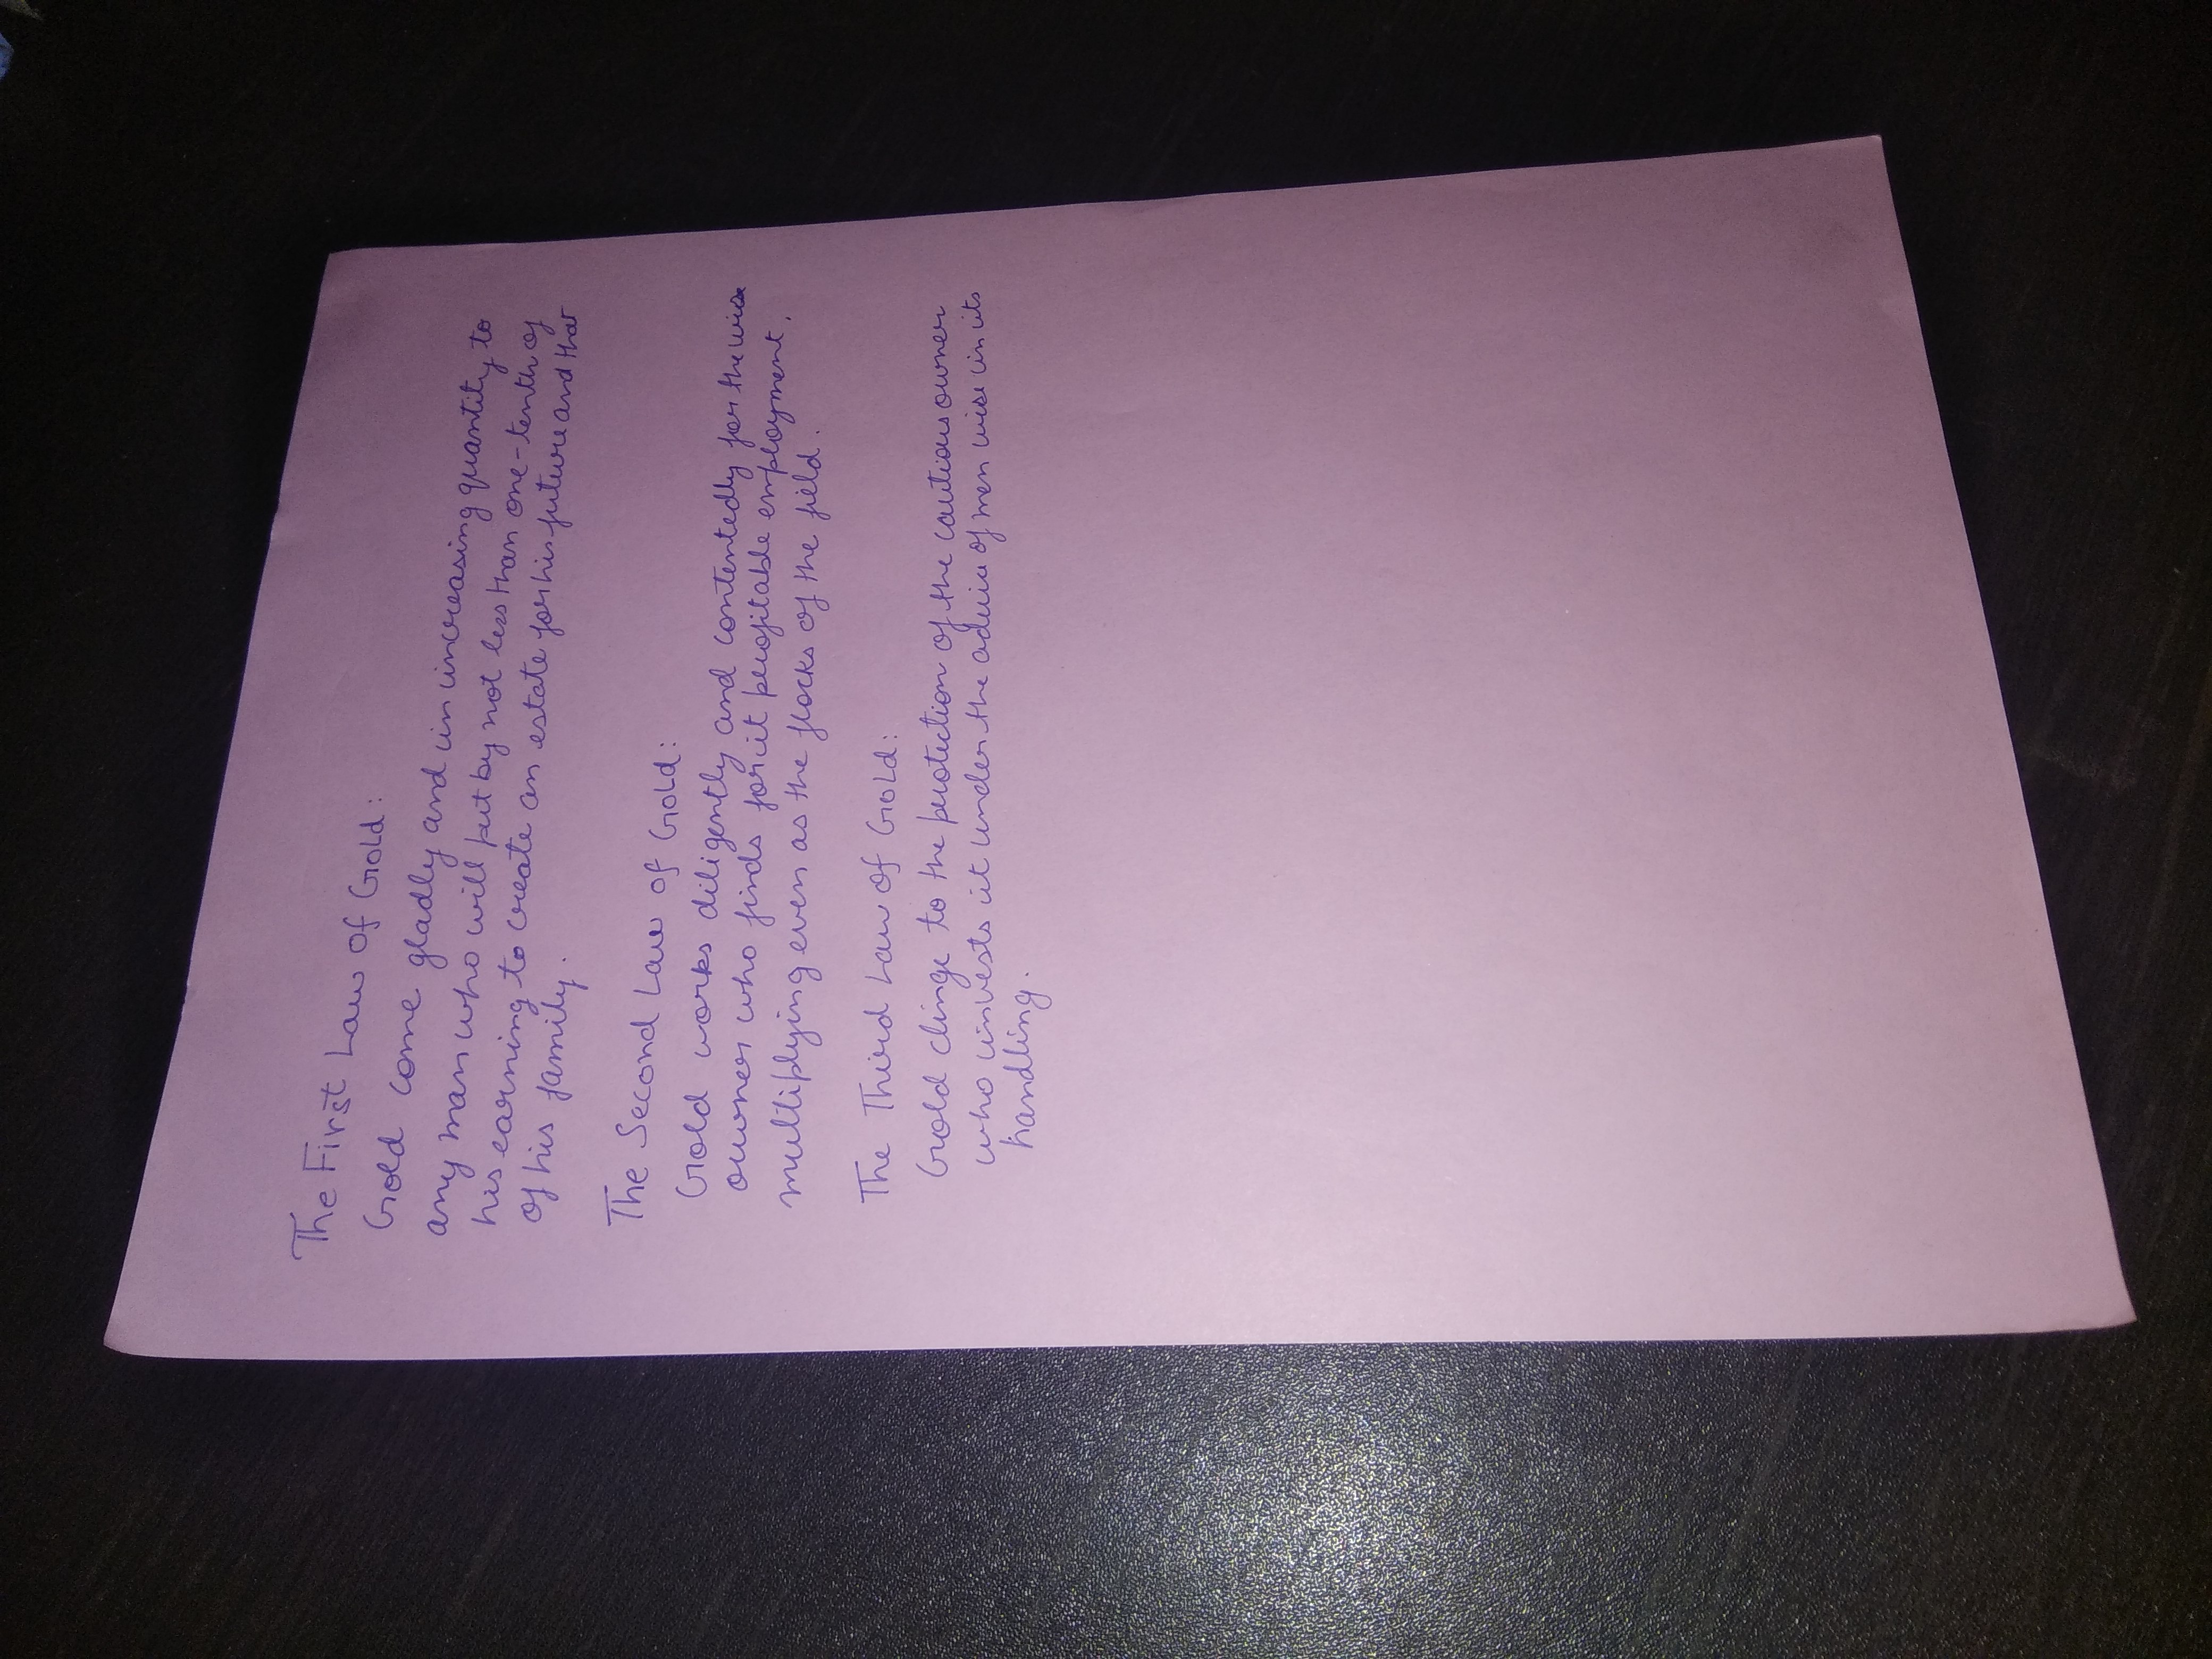 The First Law of Gold:
Gold come gladly and in increasing quantity to
any man who will put by not less than one-tenth of
his earning to create an estate for his future and that
of his family.
The Second Law of Gold:
Gold works diligently and contentedly for the wise
owner who finds for it profitable employment,
multiplying even as the flocks of the field.
The Third Law of Gold:
Gold clings to the protection of the cautious owner
who invests it under the advice of men wise in its
handling.